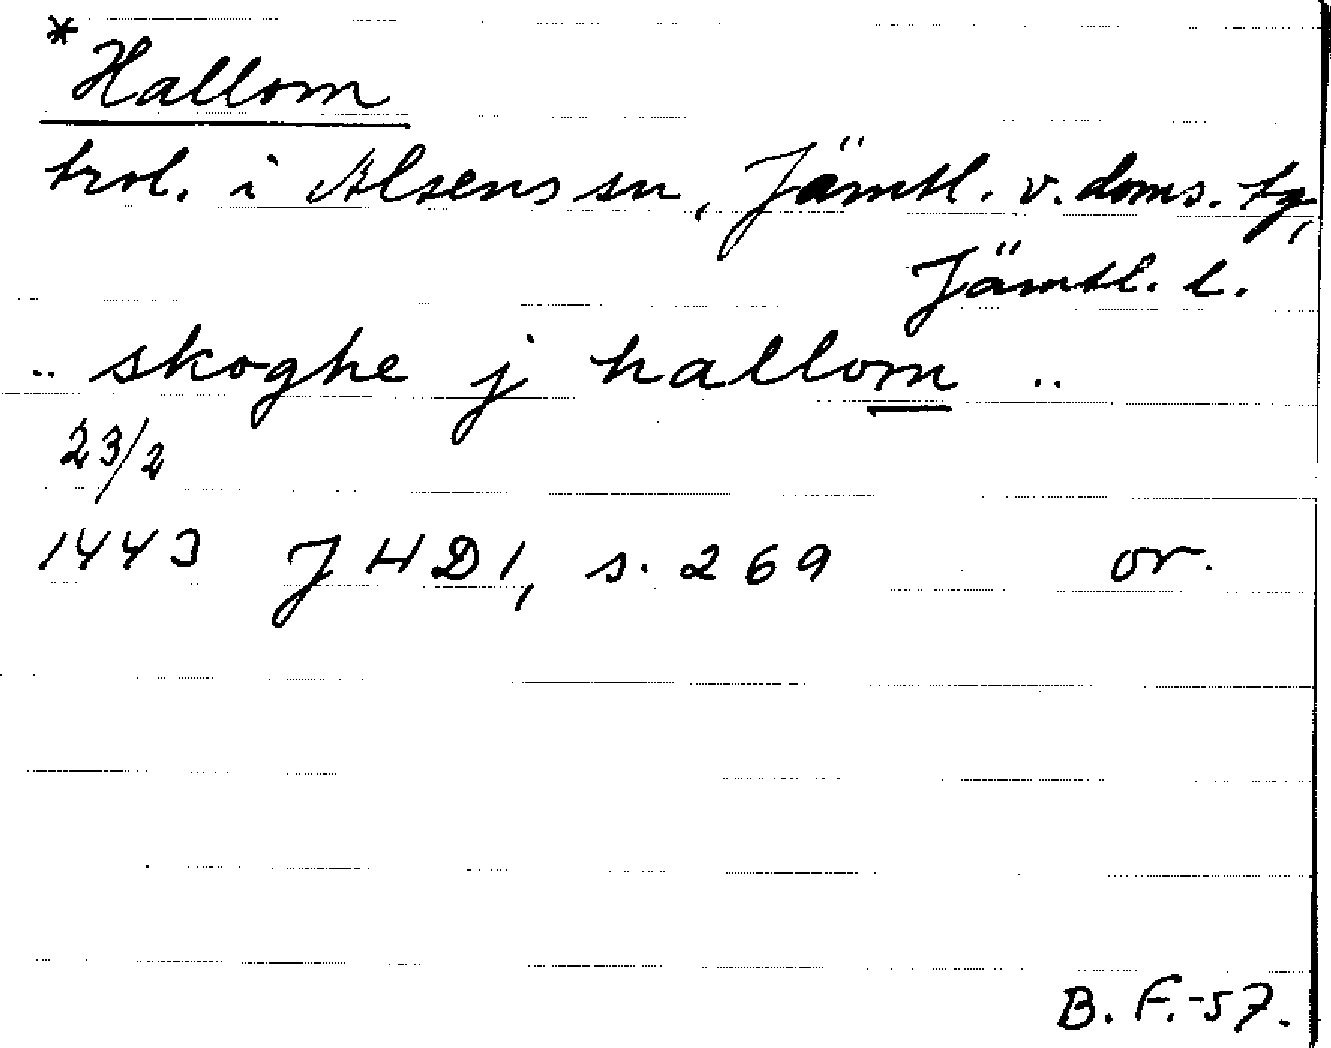 *Hallom
trol. i Alsens sn, Jämtl. v. doms. tg,
Jämtl. l.
.. skoghe j hallom ..
23/2
1443 JHD1, s. 269 or.
B. F.-57.